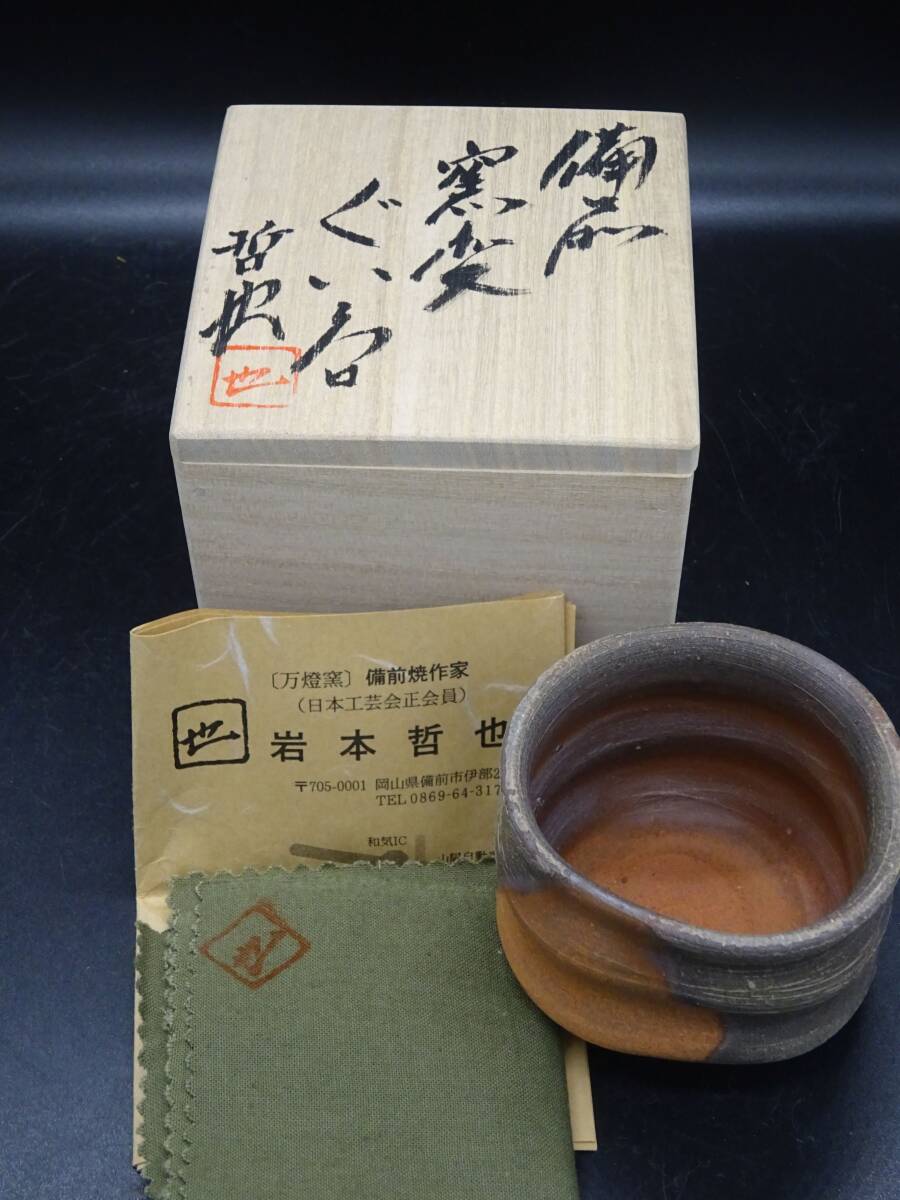 備前
窯変
ぐい呑
哲也
也
〔万燈窯〕 備前焼作家
（日本工芸会正会員）
也
岩本哲也
〒705-0001 岡山県備前市伊部2
TEL 0869-64-317
和気IC
山陽自動